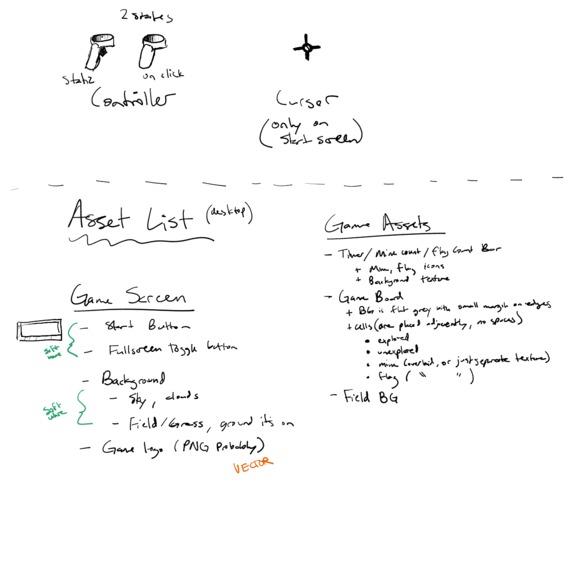 2 states
static
on click
Controller
Cursor
(only on
start screen)
Asset List (desktop)
Game Screen
- Start Button
- Fullscreen toggle button
software
- Background
- Sky, clouds
- Field/Grass, ground its on
software
- Game logo (PNG probably)
VECTOR
Game Assets
- Timer/ Mine count/ flag count Bar
+ Mine, flag icons
+ Background texture
- Game Board
+ BG is flat grey with small margin on edges
+ cells (are placed adjacently, no spaces)
• explored
• unexplored
• mine (overlaid, or just separate texture)
• flag ( " " )
- Field BG